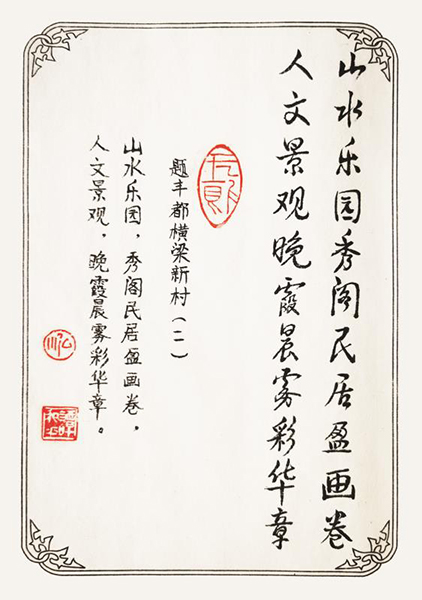 山水乐园秀阁民居盈画卷
人文景观晚霞晨雾彩华章
题丰都横梁新村（二）
山水乐园，秀阁民居盈画卷，
人文景观，晚霞晨雾彩华章。